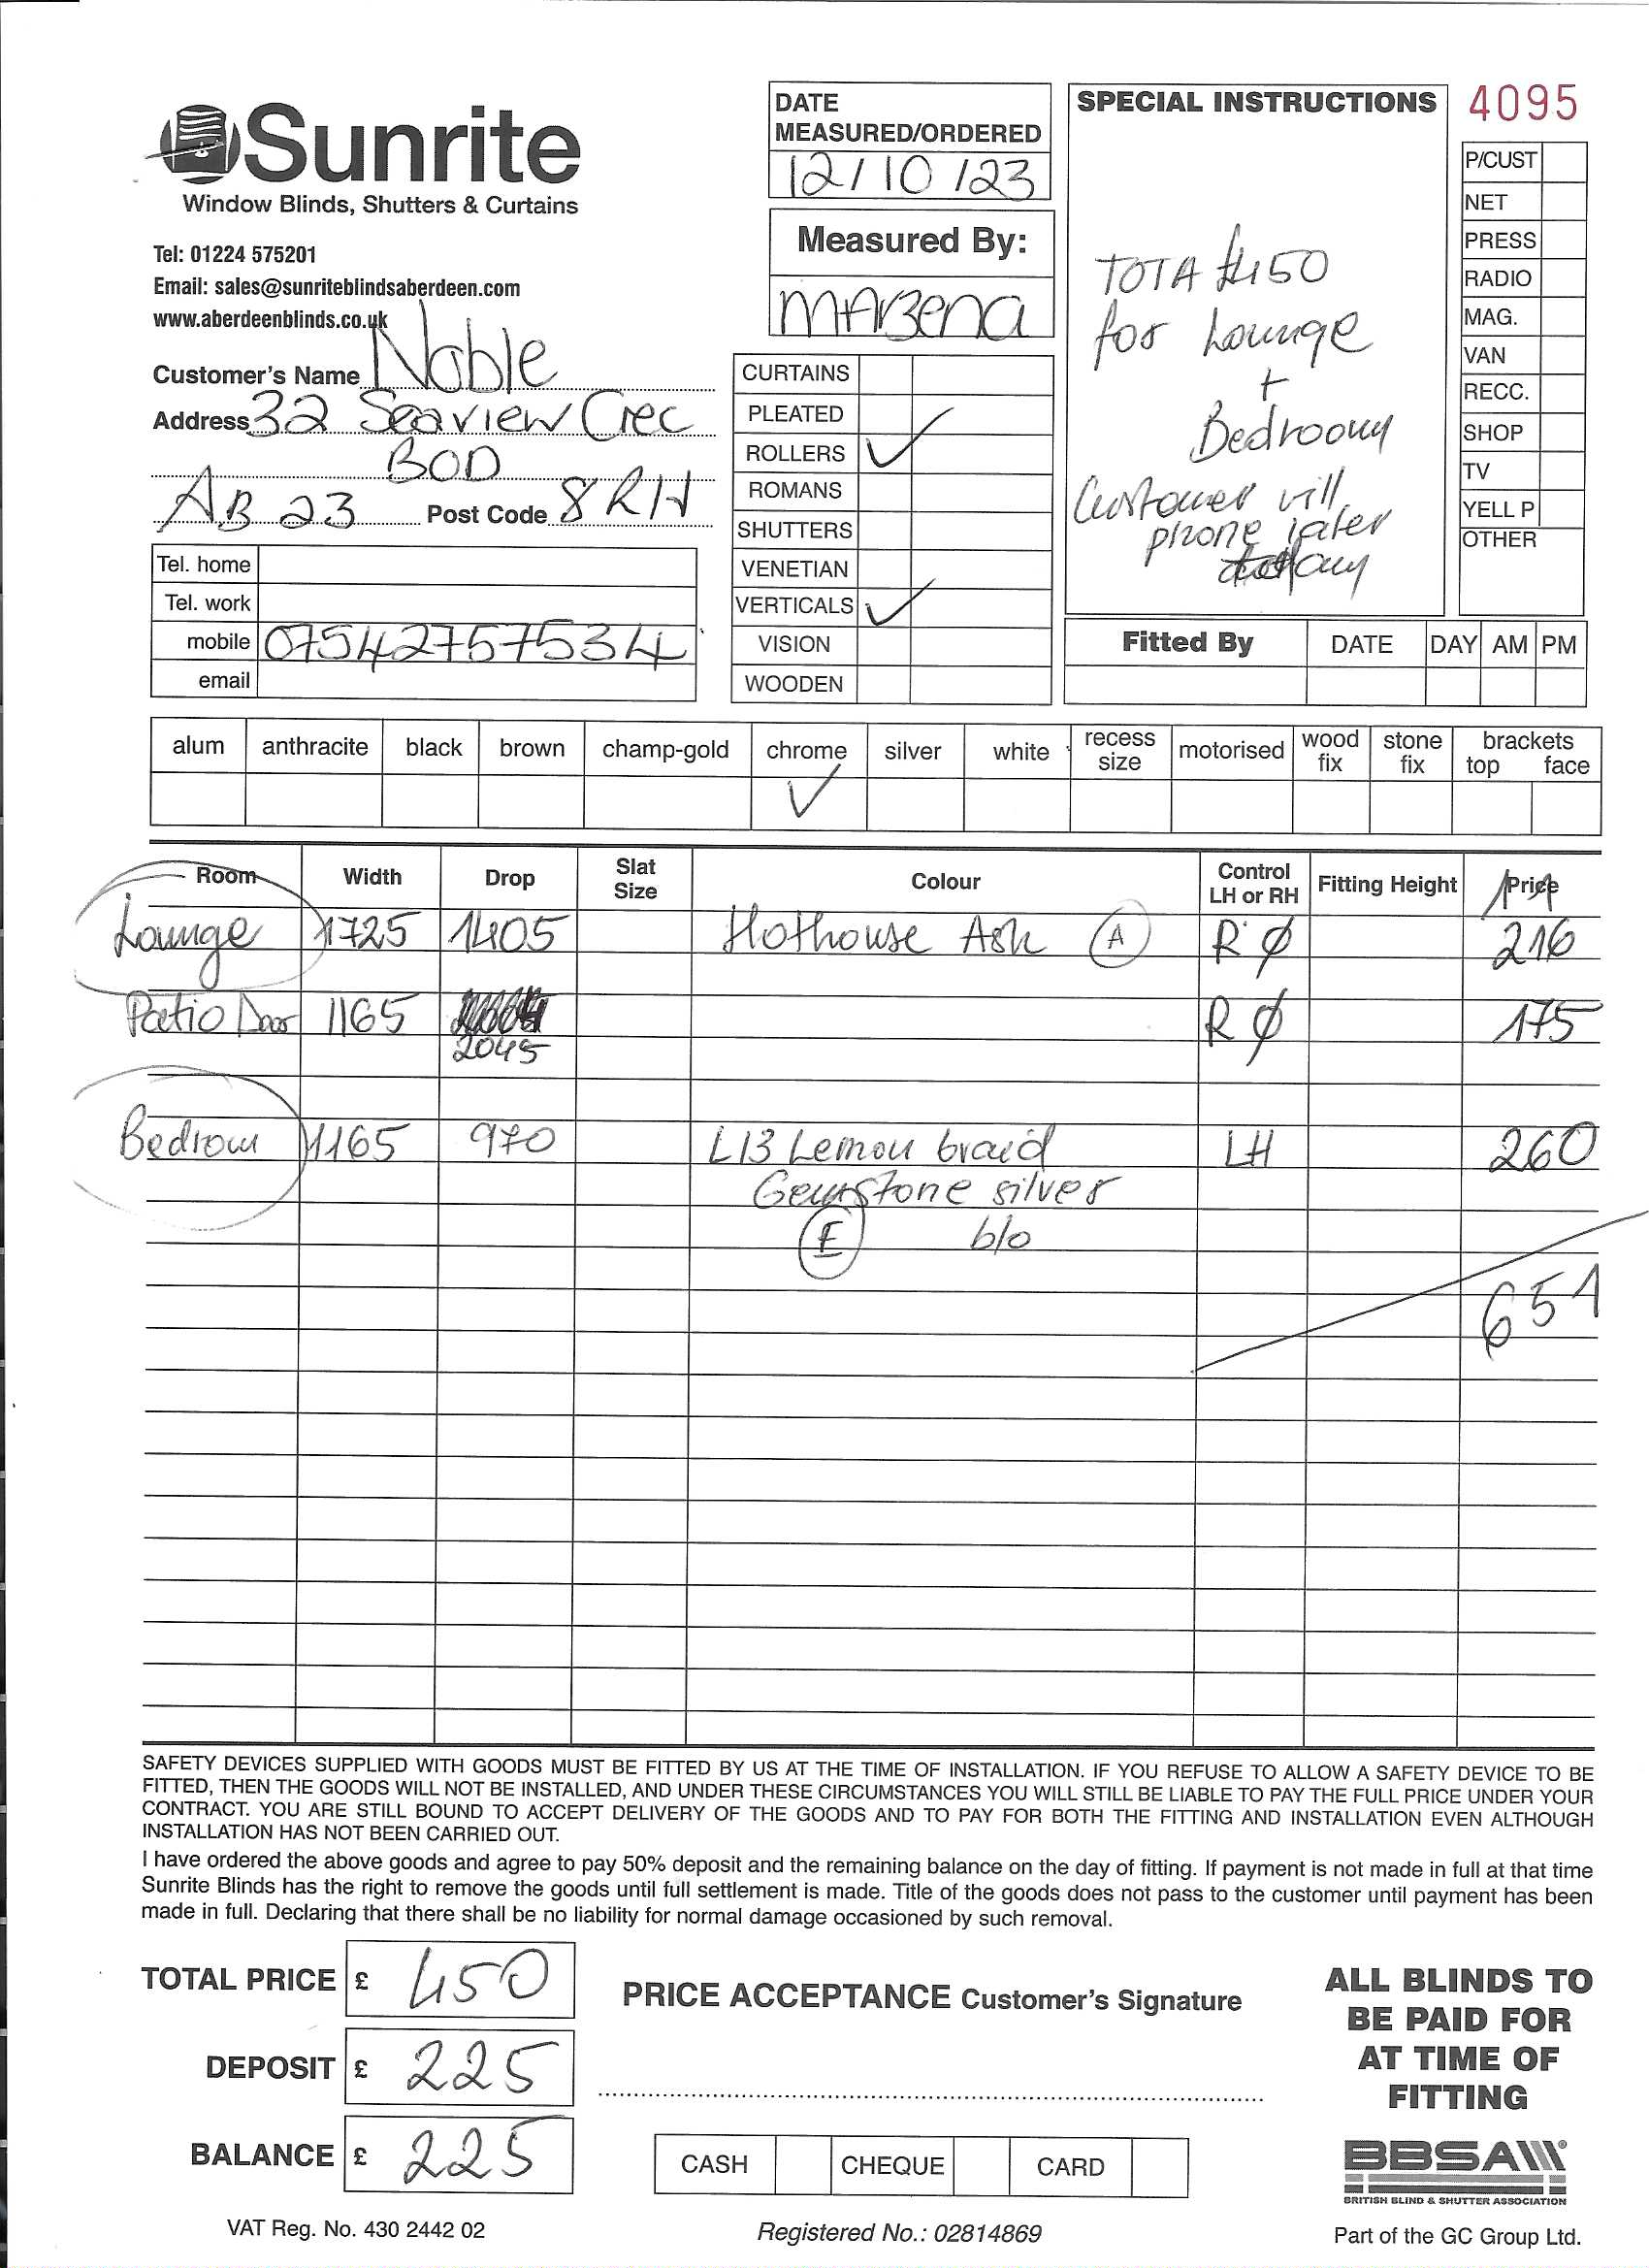 Sunrite
Window Blinds, Shutters & Curtains
Tel: 01224 575201
Email: sales@sunriteblindsaberdeen.com
www.aberdeenblinds.co.uk
Customer's Name Noble
Address 32 Seaview Crec
BOD
AB 23 Post Code 8RH
Tel. home
Tel. work
mobile 07542757534
email
DATE
MEASURED/ORDERED
12/10/23
Measured By:
MArzena
CURTAINS
PLEATED
ROLLERS ✓
ROMANS
SHUTTERS
VENETIAN
VERTICALS ✓
VISION
WOODEN
SPECIAL INSTRUCTIONS
TOTA £450
for Lounge
+
Bedroom
Customer will
phone later
4095
P/CUST
NET
PRESS
RADIO
MAG.
VAN
RECC.
SHOP
TV
YELL P
OTHER
Fitted By DATE DAY AM PM
alum anthracite black brown champ-gold chrome silver white recess size motorised wood fix stone fix brackets top face
✓
Room Width Drop Slat Size Colour Control LH or RH Fitting Height Price
Lounge 1725 1405 Hothouse Ash A R Ø 216
Patio Door 1165 2045 R Ø 175
Bedroom 1165 970 L13 Lemon braid LH 260
Gemstone silver
E b/o
651
SAFETY DEVICES SUPPLIED WITH GOODS MUST BE FITTED BY US AT THE TIME OF INSTALLATION. IF YOU REFUSE TO ALLOW A SAFETY DEVICE TO BE
FITTED, THEN THE GOODS WILL NOT BE INSTALLED, AND UNDER THESE CIRCUMSTANCES YOU WILL STILL BE LIABLE TO PAY THE FULL PRICE UNDER YOUR
CONTRACT. YOU ARE STILL BOUND TO ACCEPT DELIVERY OF THE GOODS AND TO PAY FOR BOTH THE FITTING AND INSTALLATION EVEN ALTHOUGH
INSTALLATION HAS NOT BEEN CARRIED OUT.
I have ordered the above goods and agree to pay 50% deposit and the remaining balance on the day of fitting. If payment is not made in full at that time
Sunrite Blinds has the right to remove the goods until full settlement is made. Title of the goods does not pass to the customer until payment has been
made in full. Declaring that there shall be no liability for normal damage occasioned by such removal.
TOTAL PRICE £ 450
DEPOSIT £ 225
BALANCE £ 225
PRICE ACCEPTANCE Customer's Signature
CASH CHEQUE CARD
ALL BLINDS TO
BE PAID FOR
AT TIME OF
FITTING
BBSA
BRITISH BLIND & SHUTTER ASSOCIATION
VAT Reg. No. 430 2442 02
Registered No.: 02814869
Part of the GC Group Ltd.